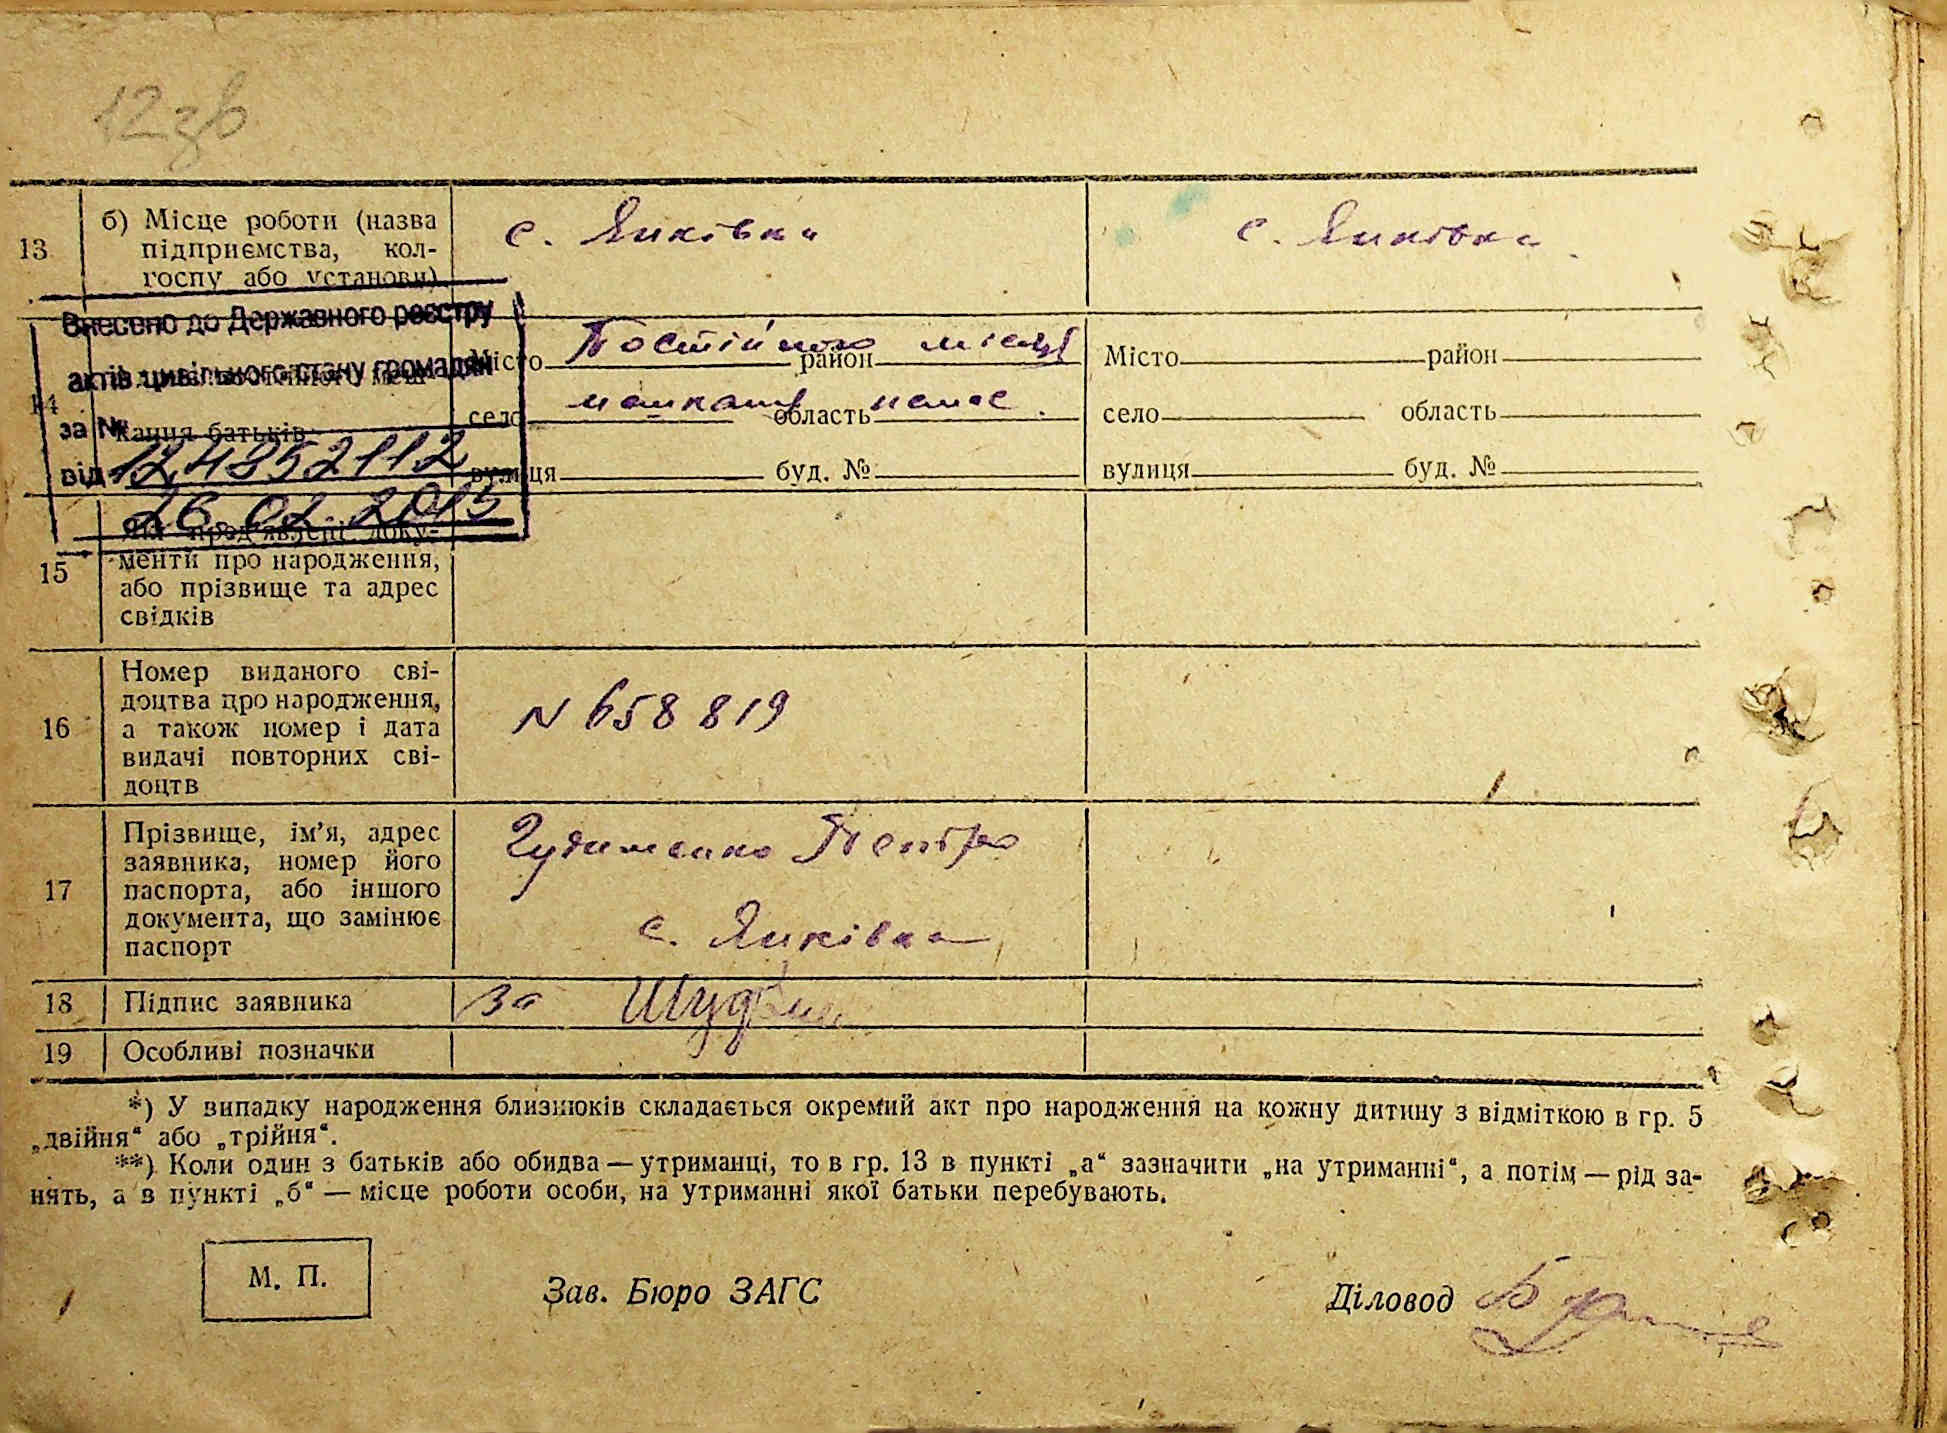 12зв
13
б) Місце роботи (назва
підприємства, кол-
госпу або установи)
с. Янківка
с. Янківка
Внесено до Державного реєстру
актів цивільного стану громадян
за №
від 124852112
26.02.2015
14
кання батьків
Місто район
село область
вулиця буд. №
Постійного місця
мешкання немає.
Місто район
село область
вулиця буд. №
15
Які пред'явлені доку-
менти про народження,
або прізвище та адрес
свідків
16
Номер виданого сві-
доцтва про народження,
а також номер і дата
видачі повторних сві-
доцтв
N 658819
17
Прізвище, ім'я, адрес
заявника, номер його
паспорта, або іншого
документа, що замінює
паспорт
Петро
с. Янківка
18
Підпис заявника
За
19
Особливі позначки
*) У випадку народження близнюків складається окремий акт про народження на кожну дитину з відміткою в гр. 5
„двійня“ або „трійня“.
**) Коли один з батьків або обидва — утриманці, то в гр. 13 в пункті „а“ зазначити „на утриманні“, а потім — рід за-
нять, а в пункті „б“ — місце роботи особи, на утриманні якої батьки перебувають.
М. П.
Зав. Бюро ЗАГС
Діловод